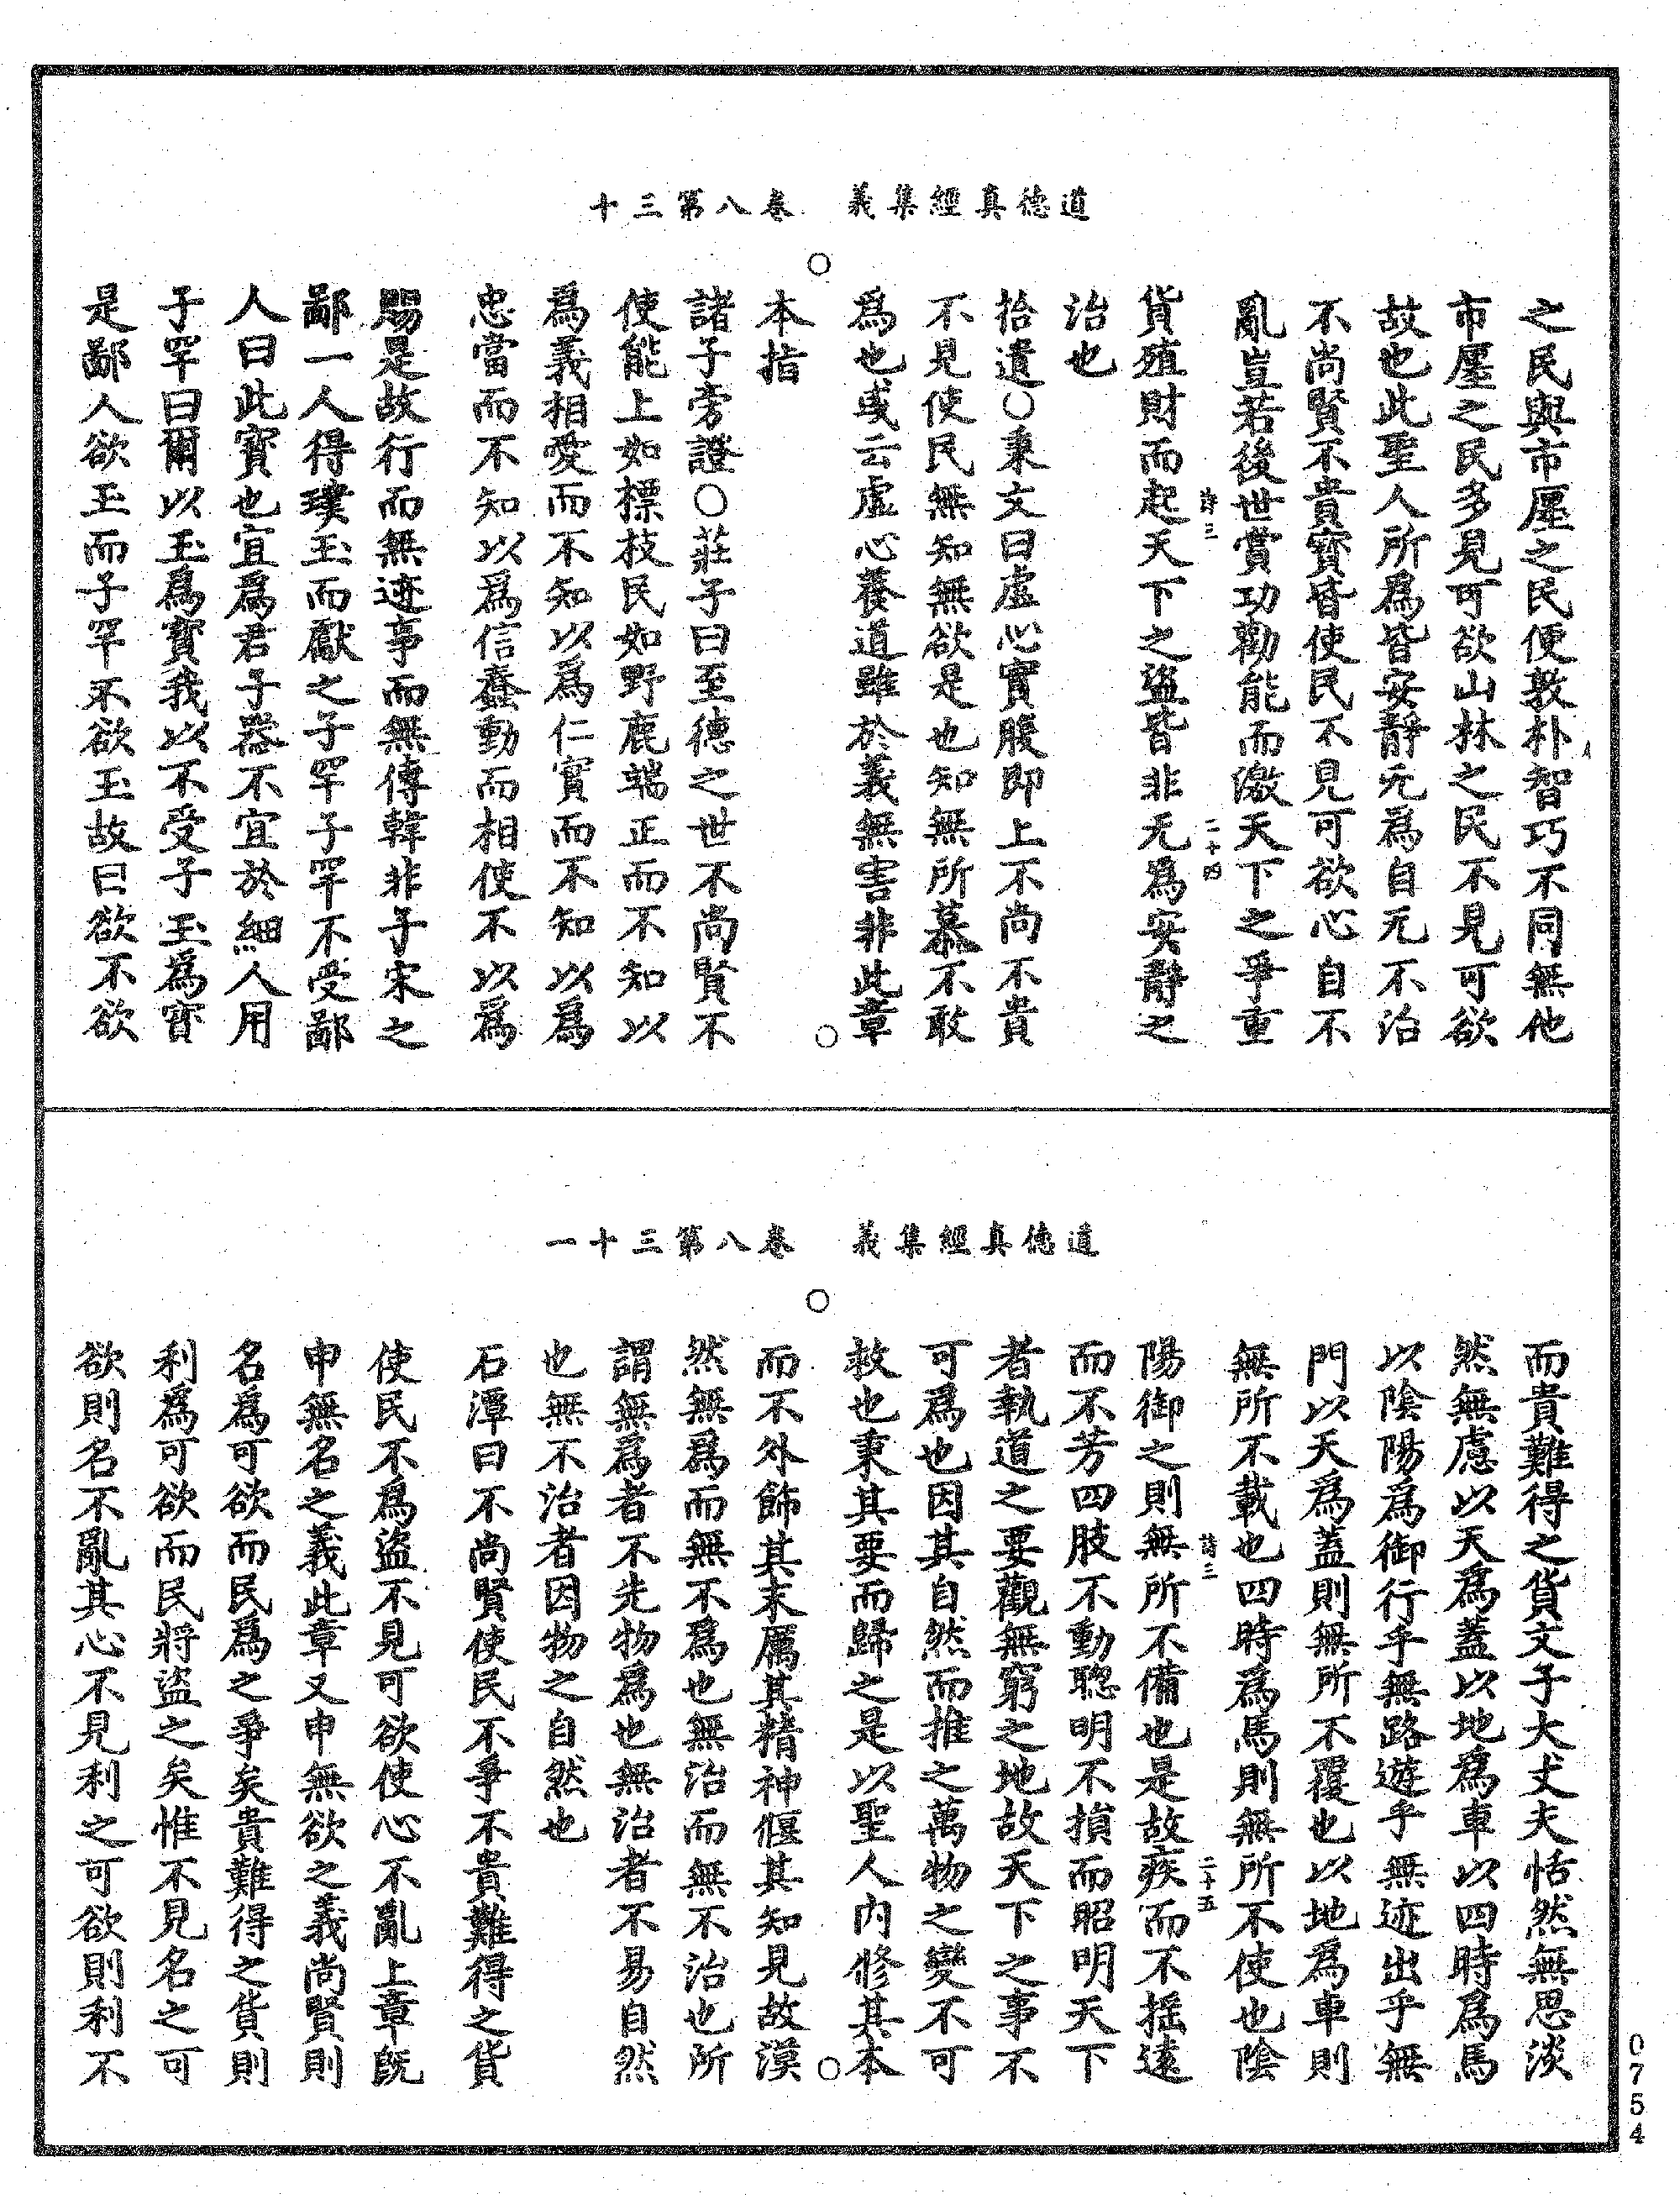 道德真經集義　卷八第三十
之民與市㕓之民便敦朴智巧不同無他
市㕓之民多見可欲山林之民不見可欲
故也此聖人所為皆安靜无為自无不治
不尚賢不貴寶皆使民不見可欲心自不
亂豈若後世賞功勸能而激天下之爭重
詩三　二十四
貨殖財而起天下之盜皆非无為安靜之
治也
拾遺○秉文曰虛心實腹即上不尚不貴
不見使民無知無欲是也知無所慕不敢
為也或云虛心養道雖於義無害非此章
本指
諸子旁證○莊子曰至德之世不尚賢不
使能上如標枝民如野鹿端正而不知以
為義相愛而不知以為仁實而不知以為
忠當而不知以為信蠢動而相使不以為
賜是故行而無迹事而無傳韓非子宋之
鄙一人得璞玉而獻之子罕子罕不受鄙
人曰此寶也宜為君子器不宜於細人用
子罕曰爾以玉為寶我以不受子玉為寶
是鄙人欲玉而子罕不欲玉故曰欲不欲
道德真經集義　卷八第三十一
而貴難得之貨文子大丈夫恬然無思淡
然無慮以天為蓋以地為車以四時為馬
以陰陽為御行乎無路遊乎無迹出乎無
門以天為蓋則無所不覆也以地為車則
無所不載也四時為馬則無所不使也陰
詩三　二十五
陽御之則無所不備也是故疾而不搖遠
而不芳四肢不動聰明不損而昭明天下
者執道之要觀無窮之地故天下之事不
可為也因其自然而推之萬物之變不可
救也秉其要而歸之是以聖人內修其本
而不外飾其末厲其精神偃其知見故漠
然無為而無不為也無治而無不治也所
謂無為者不先物為也無治者不易自然
也無不治者因物之自然也
石潭曰不尚賢使民不爭不貴難得之貨
使民不為盜不見可欲使心不亂上章既
申無名之義此章又申無欲之義尚賢則
名為可欲而民為之爭矣貴難得之貨則
利為可欲而民將盜之矣惟不見名之可
欲則名不亂其心不見利之可欲則利不
0754